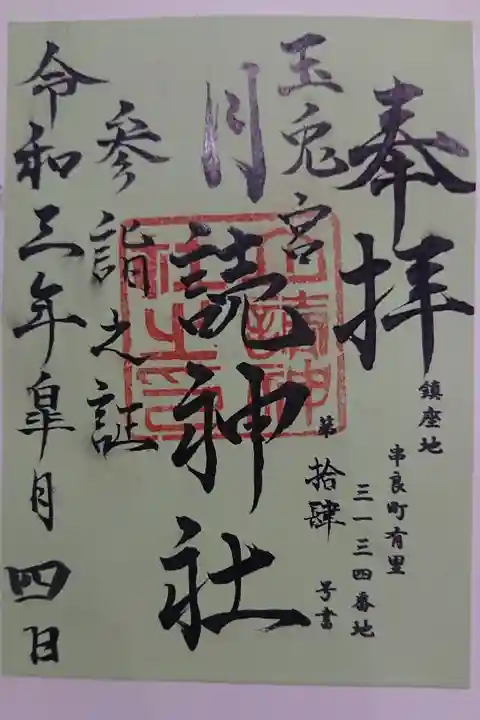 奉拝
鎮座地
串良町有里
三一三四番地
玉兎宮
第拾肆号書
月読神社
参詣之証
令和三年皐月四日